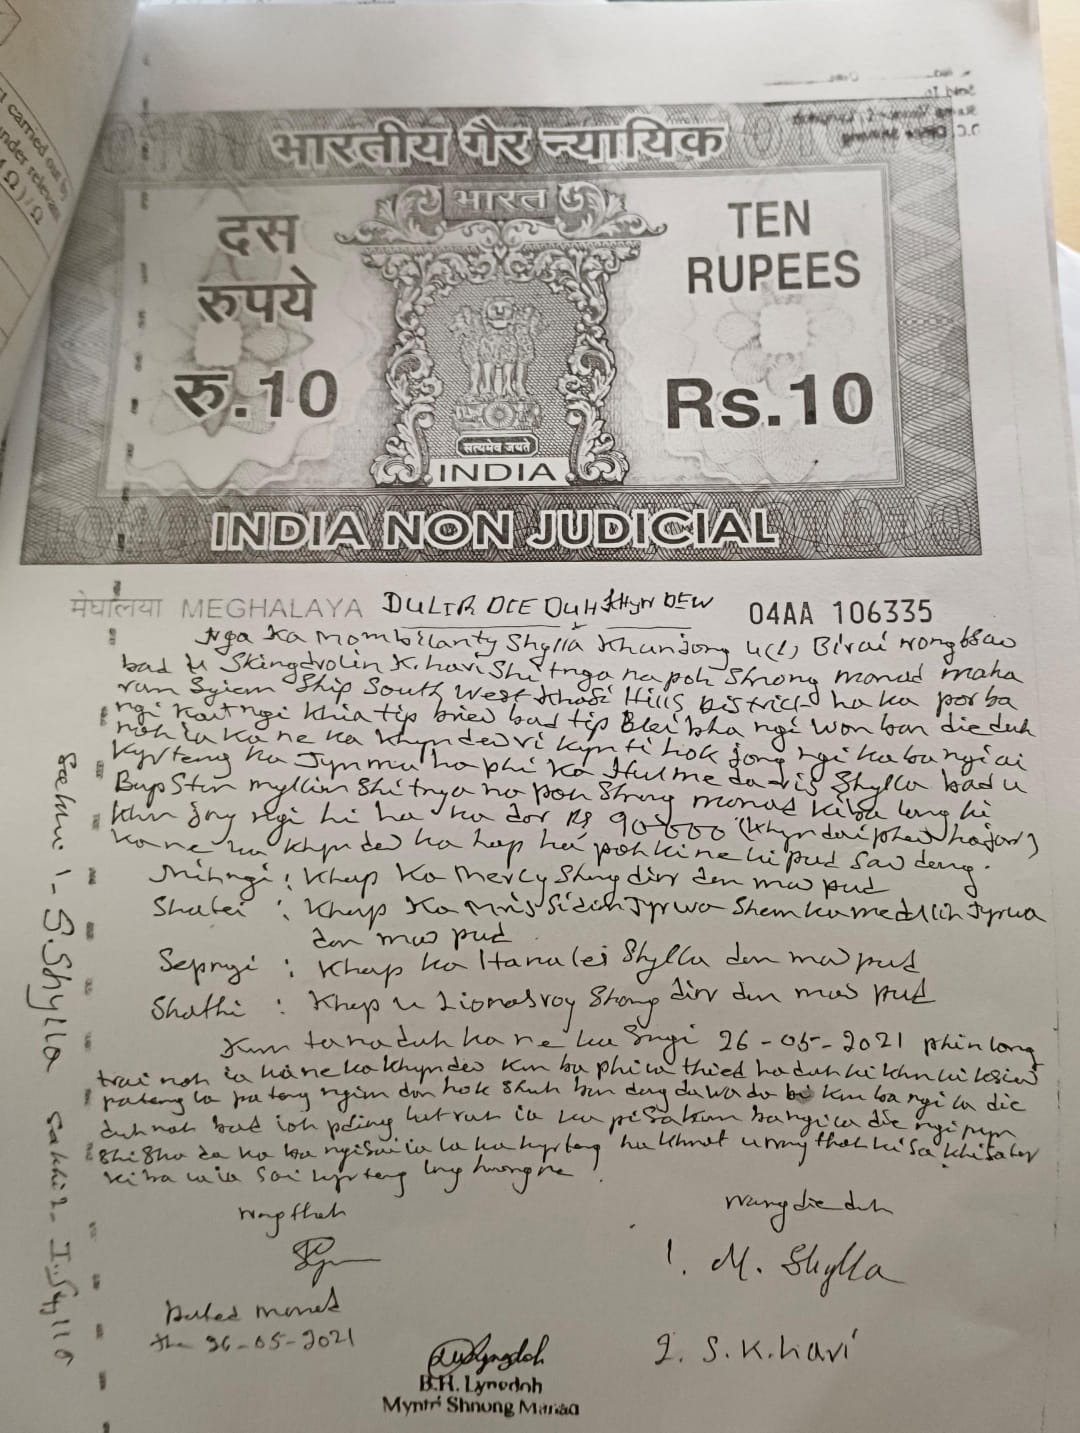 भारतीय गैर न्यायिक
भारत
दस
रुपये
रु.10
TEN
RUPEES
Rs.10
सत्यमेव जयते
INDIA
INDIA NON JUDICIAL
मेघालया MEGHALAYA DULIR DIE DUH KHYNDEW 04AA 106335
Nga Ka Mombilanty Shylla Khun jong u(L) Birai nongbsao
bad u Skingdrolin Kharishi tnga na poh Shnong monad maha
ram Syiem Ship South West Khasi Hills District ha ka por ba
ngi kait ngi khia tip briew bad tip Blei bha ngi won ban die duh
noh ia ka ne ka khyndew ri kynti hok jong ngi ka ba ngi ai
kyrteng ka Jynmu ha phi ka Hulmeda-ris Shylla bad u
Bapstin myllim Shi tnga na poh Shnong monad kiba long ki
khun jong ngi hi ha ka dor Rs 90000 (khyndai phew hajar)
ka ne ka khyndew ka hap ha poh kine ki pud saw deng.
Mihngi : Khap Ka Mercy Shongdirr don maw pud
Shatei : Khap Ka Tyrwa Shem ka Tyrwa
don maw pud
Sepngi : Khap ka Hanalei Shylla don maw pud
Shathi : Khap u Lionasroy Shongdirr don maw pud
Kum ta naduh ka ne ka Sngi 26-05-2021 phin long
trai noh ia kane ka khyndew kum ba phi la thied haduh ki khun ki ksiew
pateng la pateng ngim don hok shuh ban dang dawa da kum ba ngi la die
duh noh bad ioh pdiang lut ruh ia ka pisa kum ba ngi la die ngi pyn
shisha da ka ba ngi soi ia la ka kyrteng ha khmat u nongthoh ki sakhi
kiba la ia soi kyrteng
Nongthoh
Nongdie duh
1. M. Shylla
Dated monad
the 26-05-2021
2. S. Khari
B.H. Lyngdoh
Myntri Shnong Manad
Sakhi 1- S. Shylla
Sakhi 2- I. Shylla